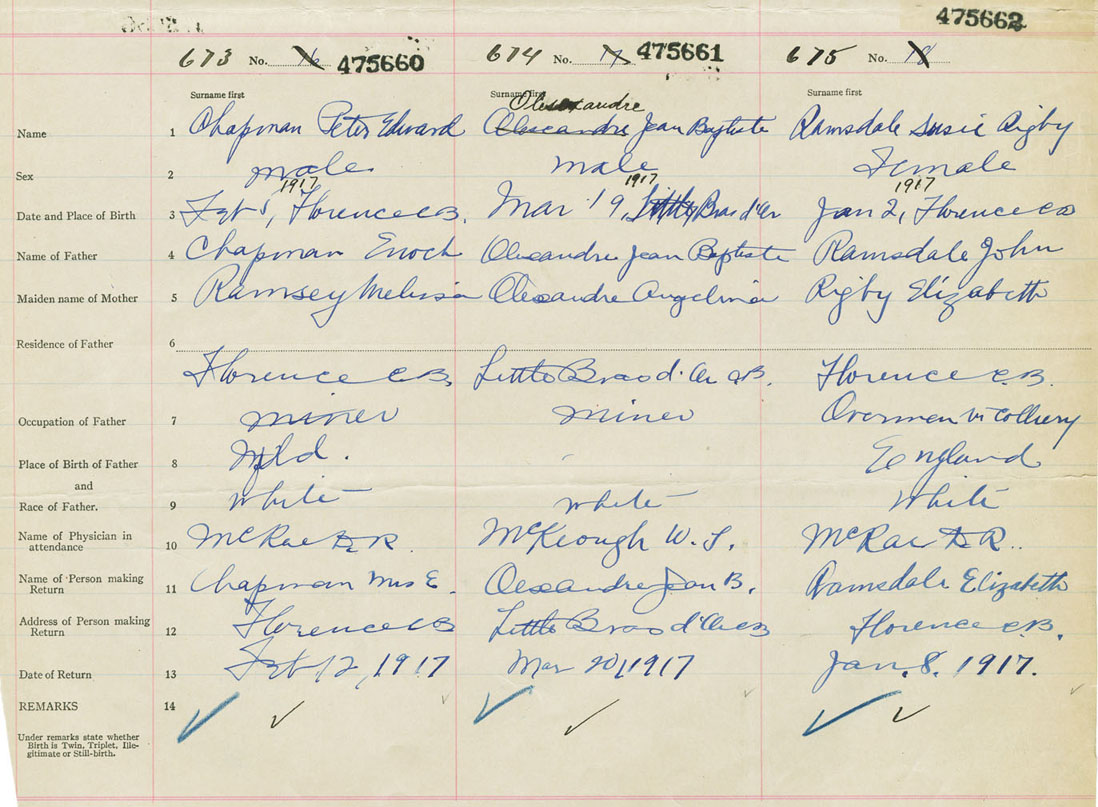 475662
673 No. 16 475660 674 No. 17 475661 675 No. 18
Surname first Surname first Surname first
Olesxandre
Name 1 Chapman Peter Edward Olescandre Jean Baptiste Ramsdale Susie Rigby
Sex 2 male male Female
1917 1917 1917
Date and Place of Birth 3 Feb 5, Florence C.B. Mar 19, Little Bras d'Or Jan 2, Florence CB
Name of Father 4 Chapman Enoch Olexandre Jean Baptiste Ramsdale John
Maiden name of Mother 5 Ramsey Melissa Olexandre Angelina Rigby Elizabeth
Residence of Father 6
Florence C.B. Little Bras d'Or C.B. Florence C.B.
Occupation of Father 7 miner miner Overman in Colliery
Place of Birth of Father 8 Nfld. England
and
Race of Father. 9 white white white
Name of Physician in
attendance 10 McRae D R. McKeough W. J. McRae D R..
Name of Person making
Return 11 Chapman Mrs E. Olexandre Jean B. Ramsdale Elizabeth
Address of Person making
Return 12 Florence CB Little Bras d'Or CB Florence C.B.
Date of Return 13 Feb 12, 1917 Mar 20, 1917 Jan. 8. 1917.
REMARKS 14
Under remarks state whether
Birth is Twin, Triplet, Ille-
gitimate or Still-birth.